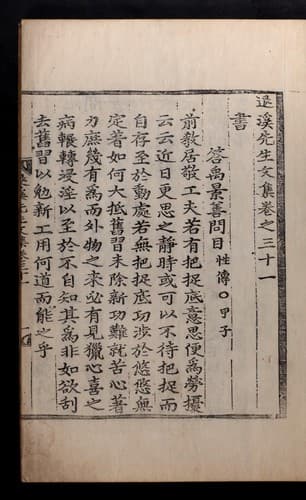 退溪先生文集卷之三十一
書
答禹景善問目 性傳○甲子
前敎居敬工夫若有把捉底意思便爲勞攘
云云近日更思之靜時或可以不待把捉而
自存至於動處若無把捉底功涉於悠悠無
定著如何大抵舊習未除新功難就苦心著
力庶幾有爲而外物之來必有見獵心喜之
病輾轉浸淫以至於不自知其爲非如欲刮
去舊習以勉新工用何道而能之乎